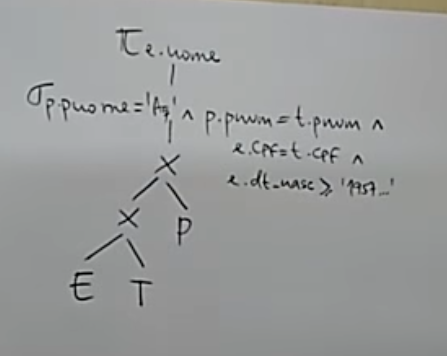 π e.nome
σ p.pnome='Aq' ∧ p.pnum=t.pnum ∧
e.CPF=t.CPF ∧
e.dt_nasc ≥ '1957...'
X
X P
E T